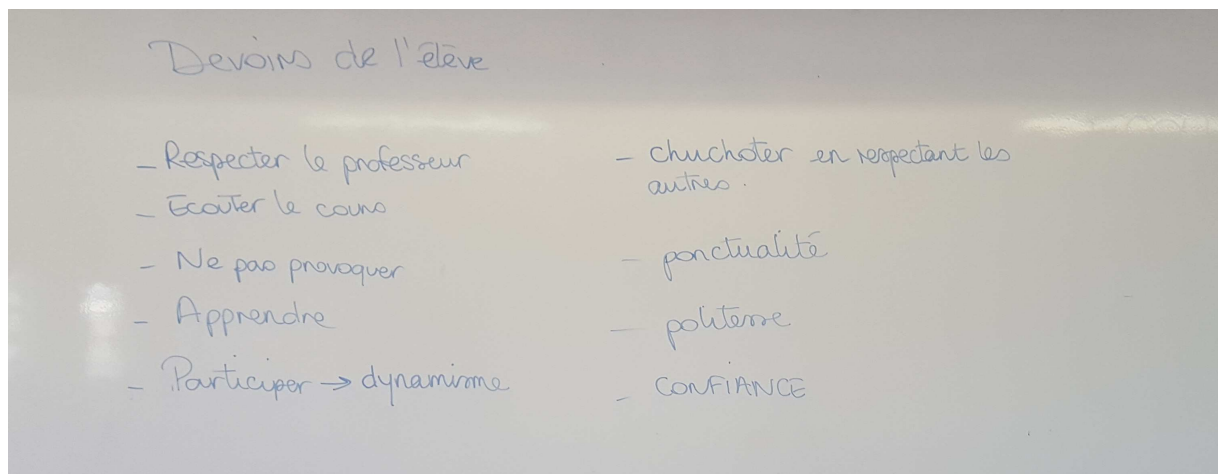 Devoirs de l'élève
- Respecter le professeur
- Ecouter le cours
- Ne pas provoquer
- Apprendre
- Participer → dynamisme
- chuchoter en respectant les
autres.
- ponctualité
- politesse
- CONFIANCE